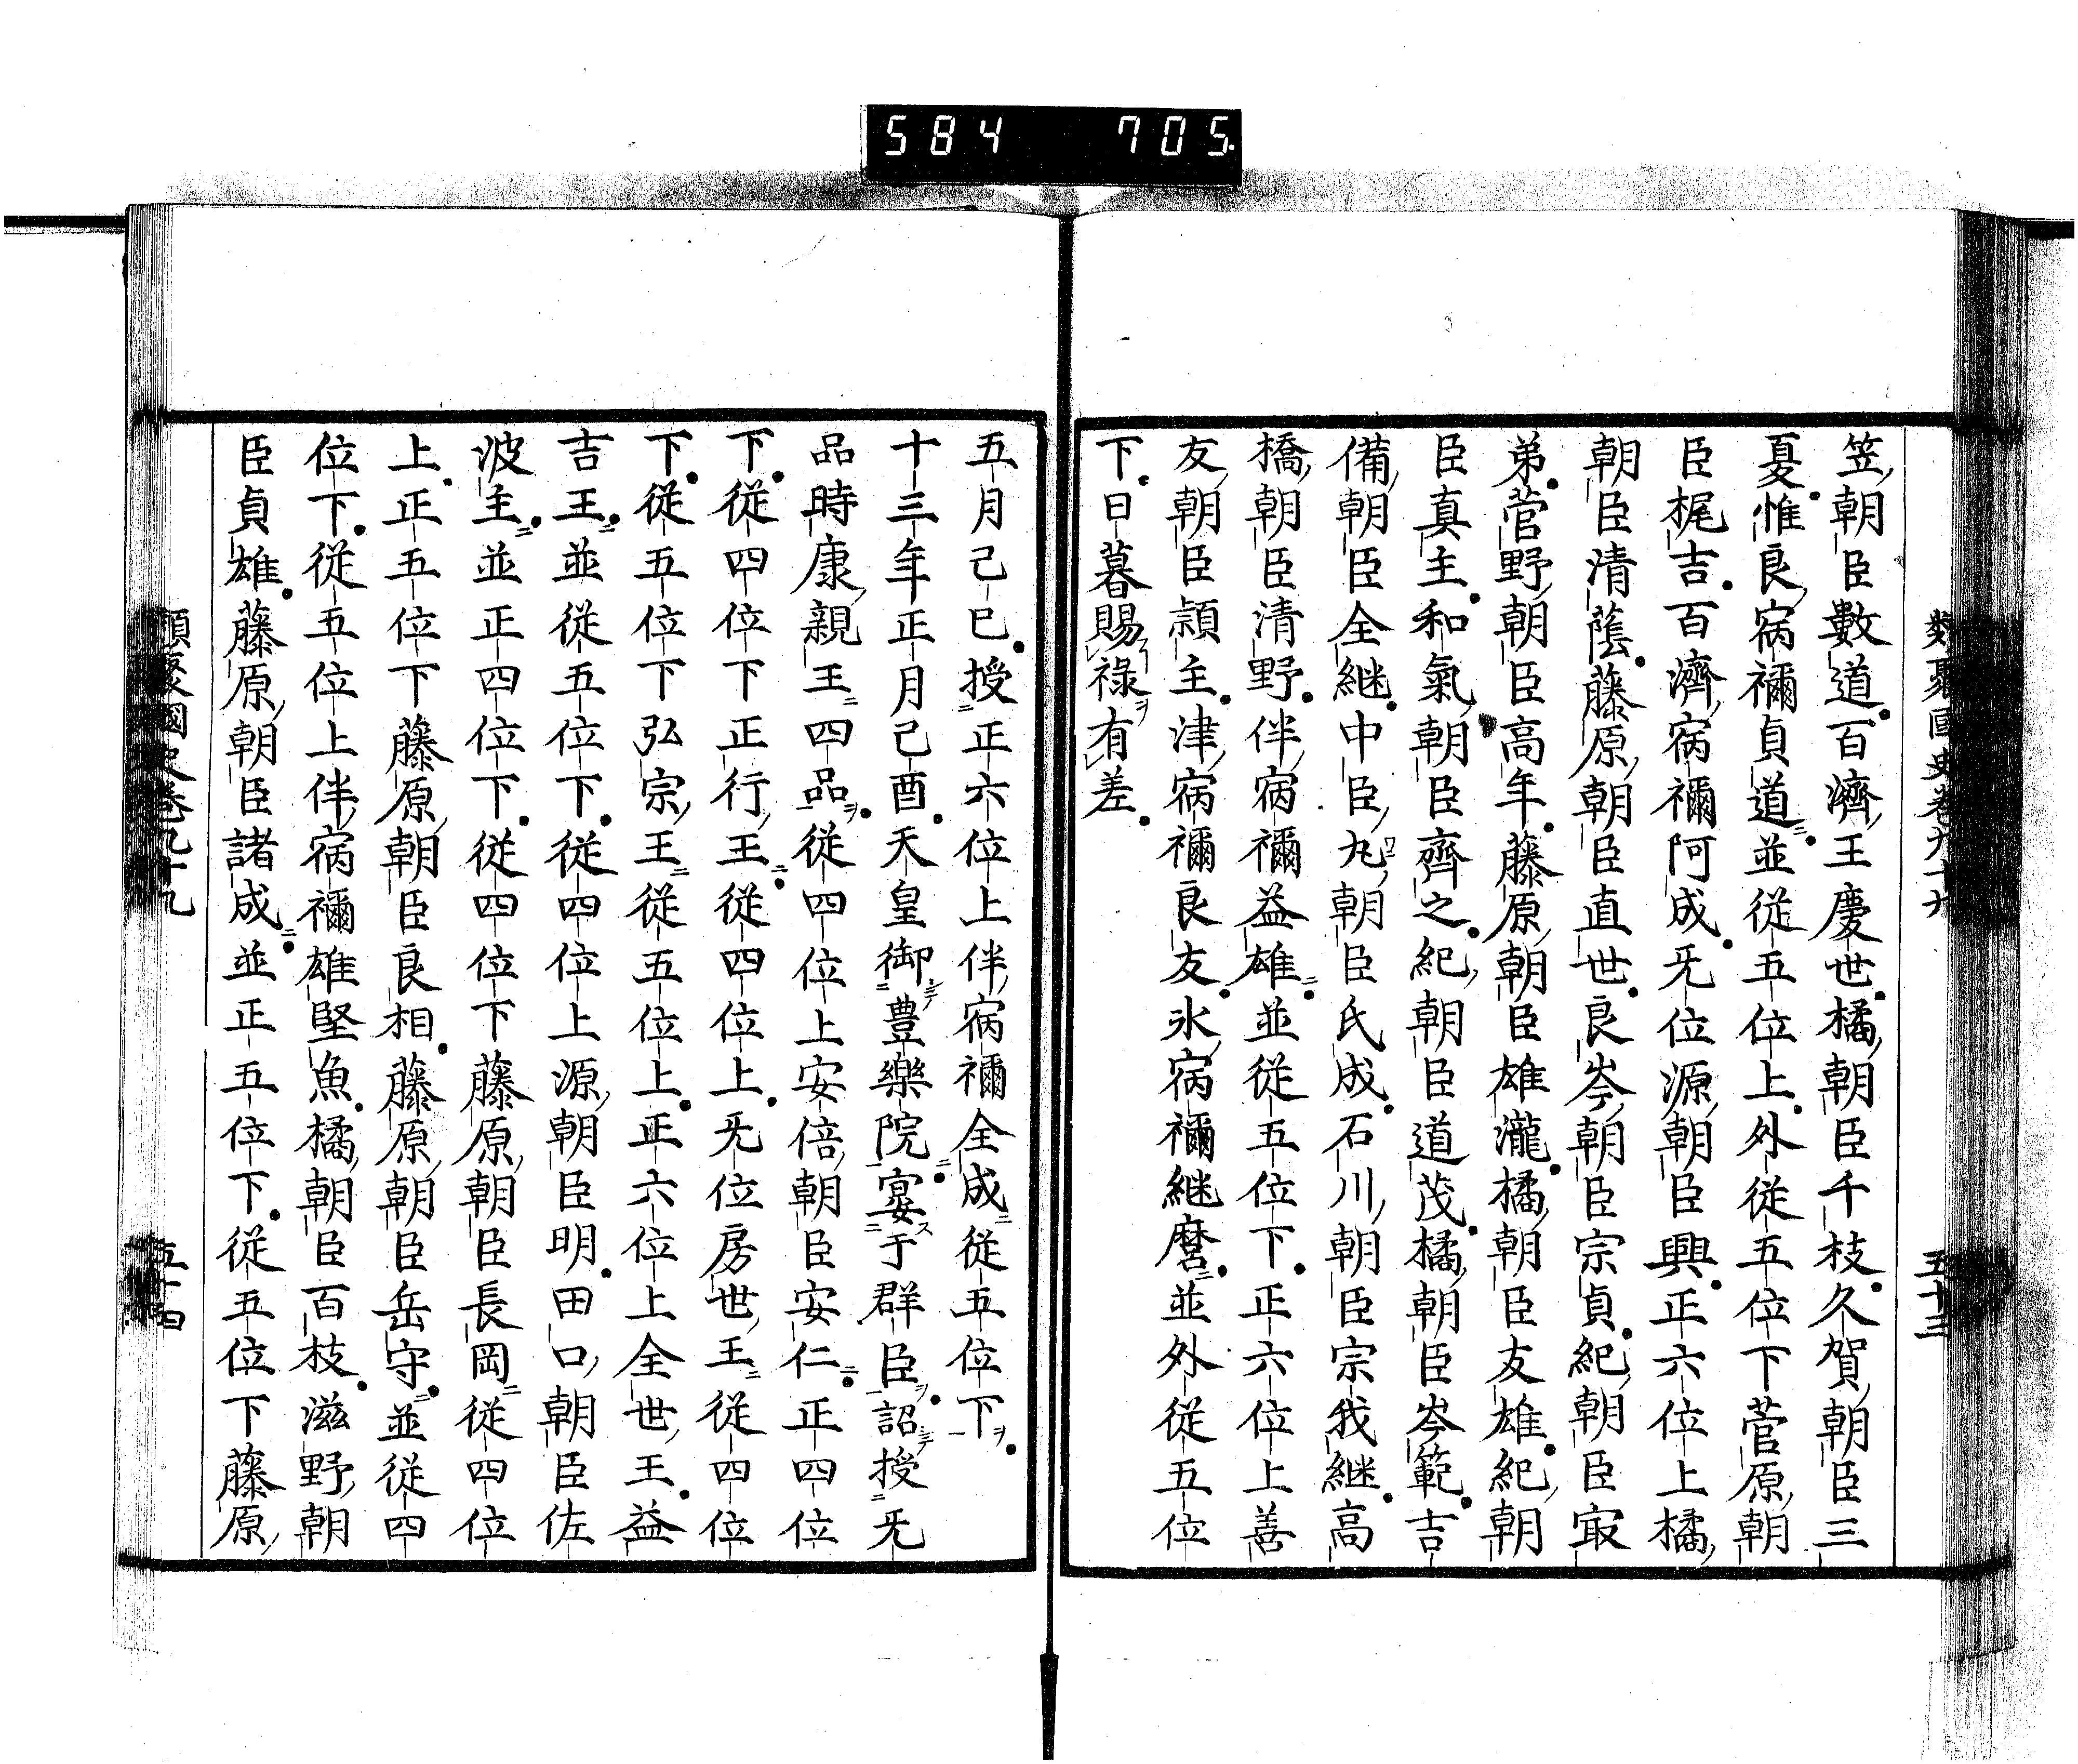 584 705.
類聚國史卷九十九 五十三
笠朝臣數道百濟王慶世橘朝臣千枝久賀朝臣三
夏惟良宿禰貞道並從五位上外從五位下菅原朝
臣梶吉百濟宿禰阿成无位源朝臣興正六位上橘
朝臣清蔭藤原朝臣直世良岑朝臣宗貞紀朝臣㝡
弟菅野朝臣高年藤原朝臣雄瀧橘朝臣友雄紀朝
臣真主和氣朝臣齊之紀朝臣道茂橘朝臣岑範吉
備朝臣全継中臣丸朝臣氏成石川朝臣宗我継高
橋朝臣清野伴宿禰益雄並從五位下正六位上善
友朝臣頴主津宿禰良友氷宿禰継麿並外從五位
下日暮賜禄有差
五月己巳授正六位上伴宿禰全成從五位下
十三年正月己酉天皇御豊樂院宴于群臣詔授无
品時康親王四品從四位上安倍朝臣安仁正四位
下從四位下正行王從四位上无位房世王從四位
下從五位下弘宗王從五位上正六位上全世王益
吉王並從五位下從四位上源朝臣明田口朝臣佐
波主並正四位下從四位下藤原朝臣長岡從四位
上正五位下藤原朝臣良相藤原朝臣岳守並從四
位下從五位上伴宿禰雄堅魚橘朝臣百枝滋野朝
臣貞雄藤原朝臣諸成並正五位下從五位下藤原
類聚國史卷九十九 五十四